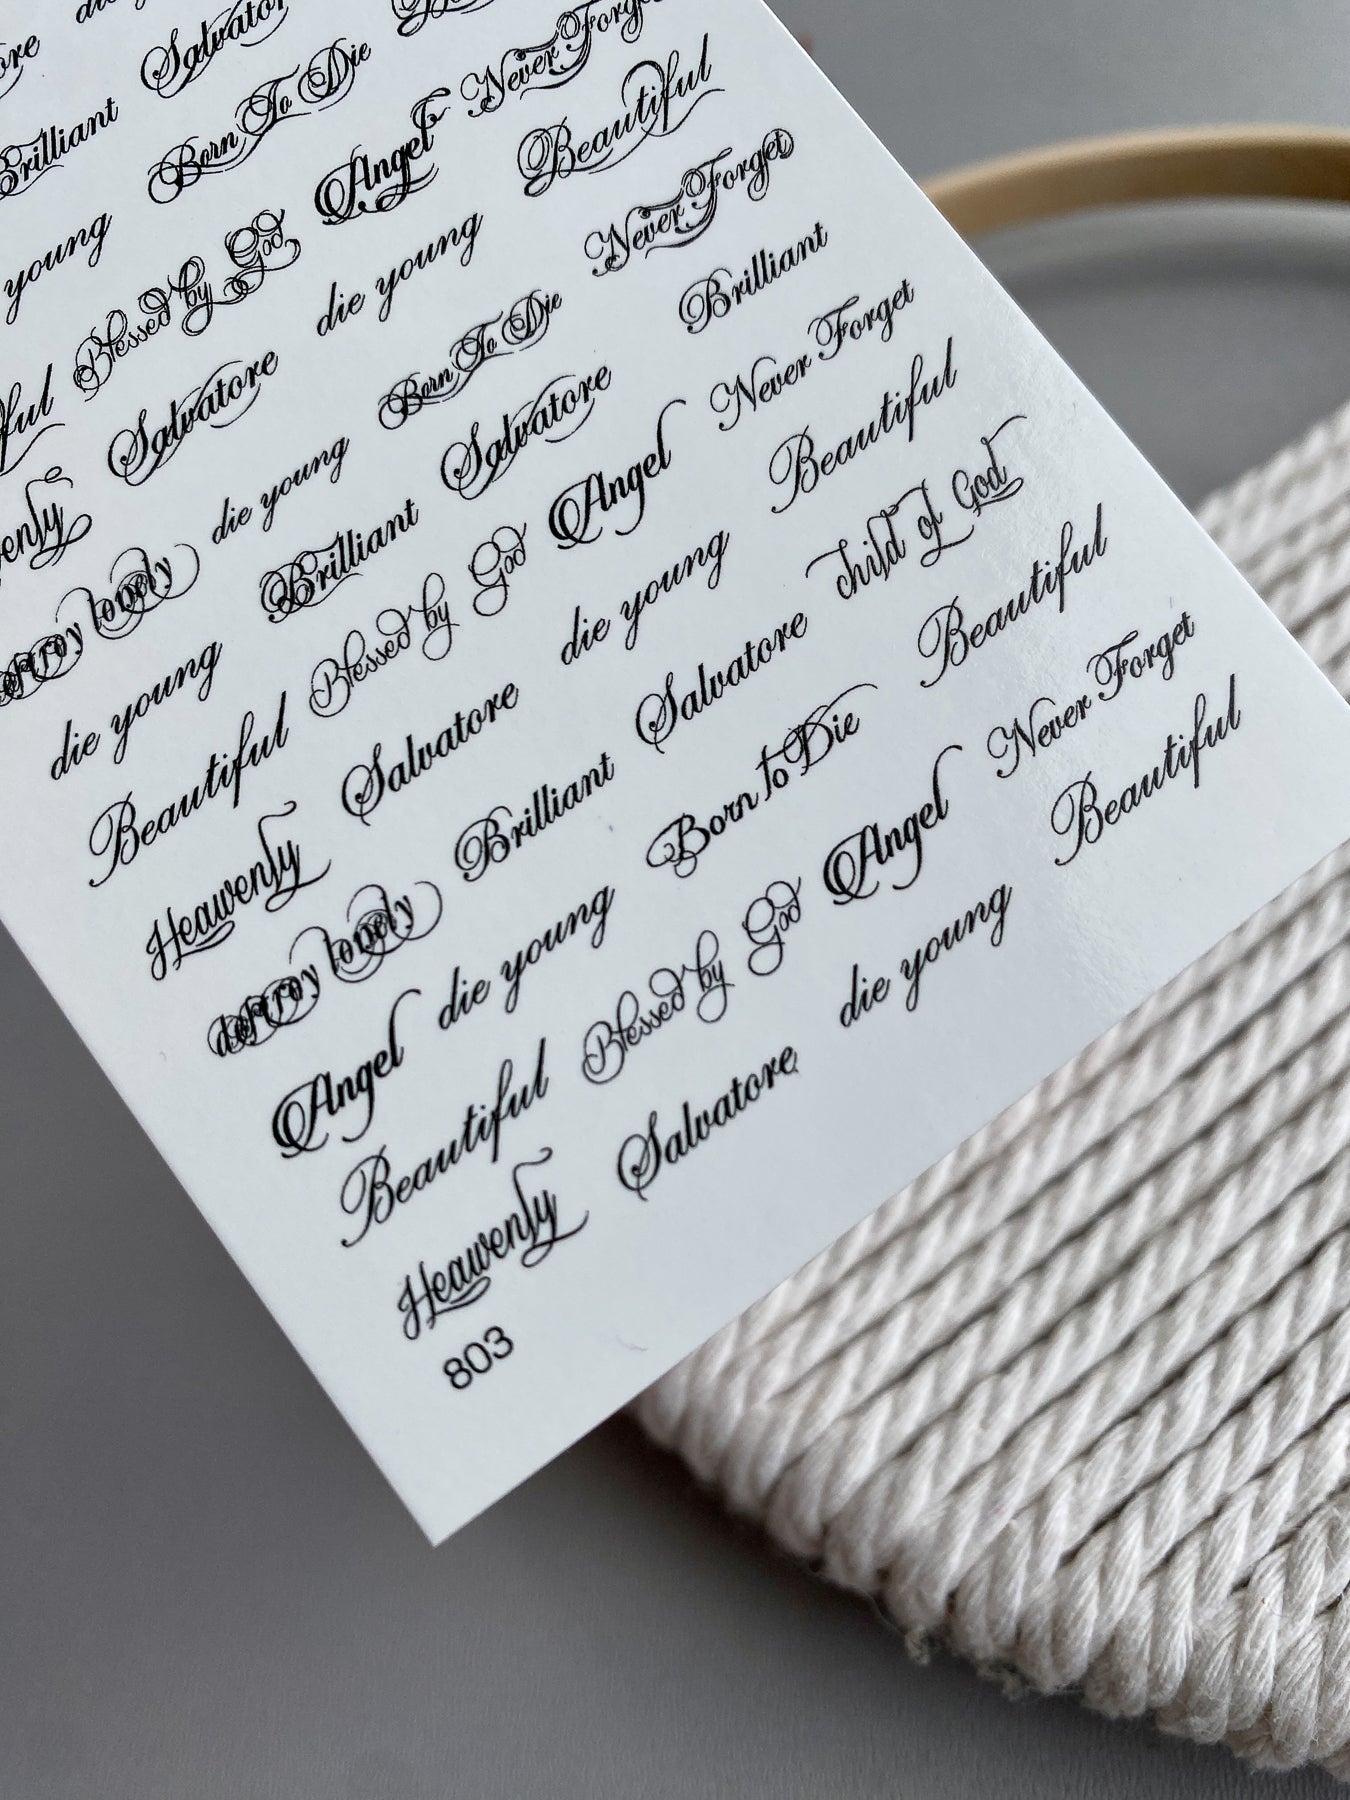 Salvatore
Brilliant
Born To Die
Never Forget
young
Blessed by God
Angel
Beautiful
Salvatore
die young
Never Forget
die young
Born To Die
Brilliant
Brilliant
Salvatore
Never Forget
destroy lonely
Blessed by God
Angel
Beautiful
die young
Salvatore
die young
Child of God
Beautiful
Brilliant
Salvatore
Beautiful
Heavenly
die young
Born To Die
Never Forget
destroy lonely
Blessed by God
Angel
Beautiful
Angel
Salvatore
die young
Beautiful
Heavenly
803